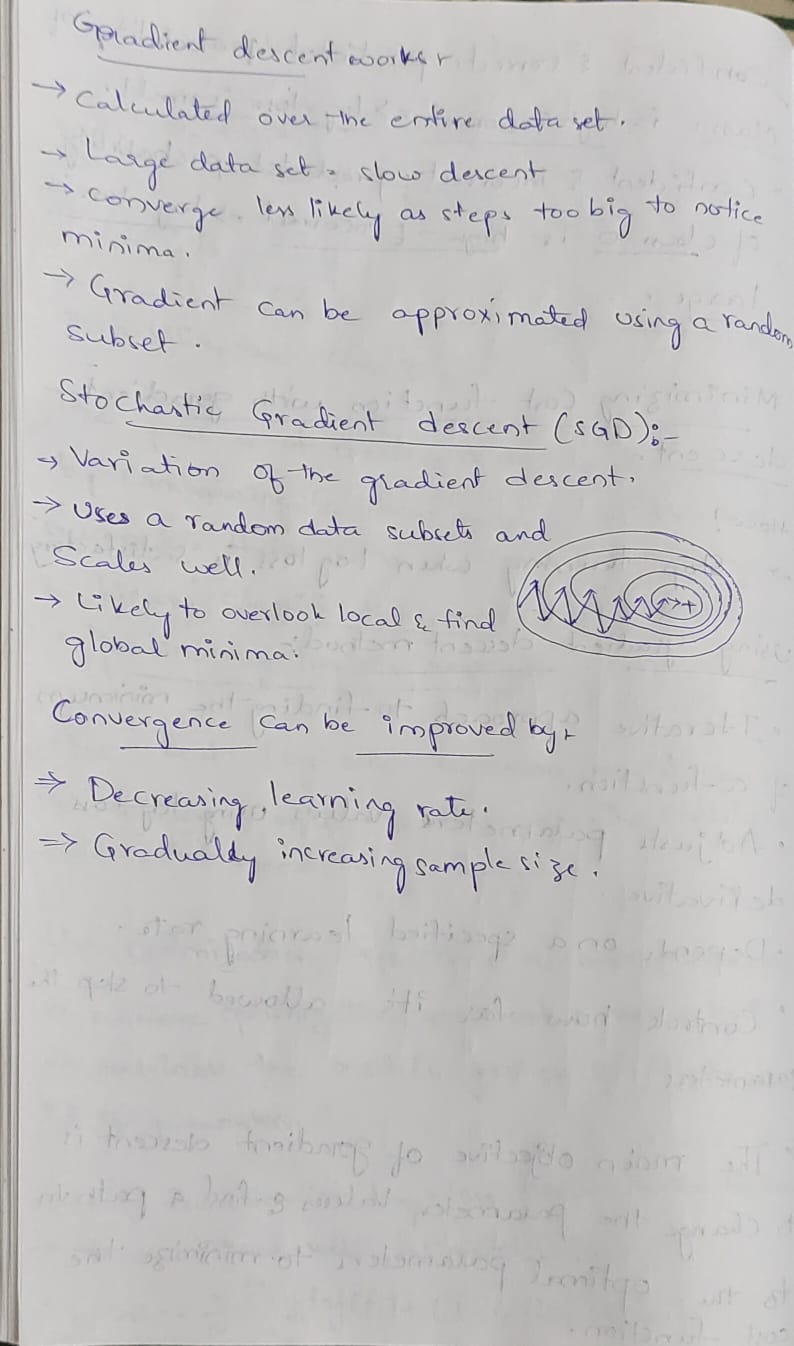 Gradient descent works :-
→ Calculated over the entire data set.
→ Large data set = slow descent
→ converge less likely as steps too big to notice
minima.
→ Gradient can be approximated using a random
subset.
Stochastic Gradient descent (SGD):-
→ Variation of the gradient descent.
→ Uses a random data subsets and
Scales well.
→ Likely to overlook local & find
global minima.
Convergence can be improved by :-
⇒ Decreasing learning rate.
⇒ Gradually increasing sample size.